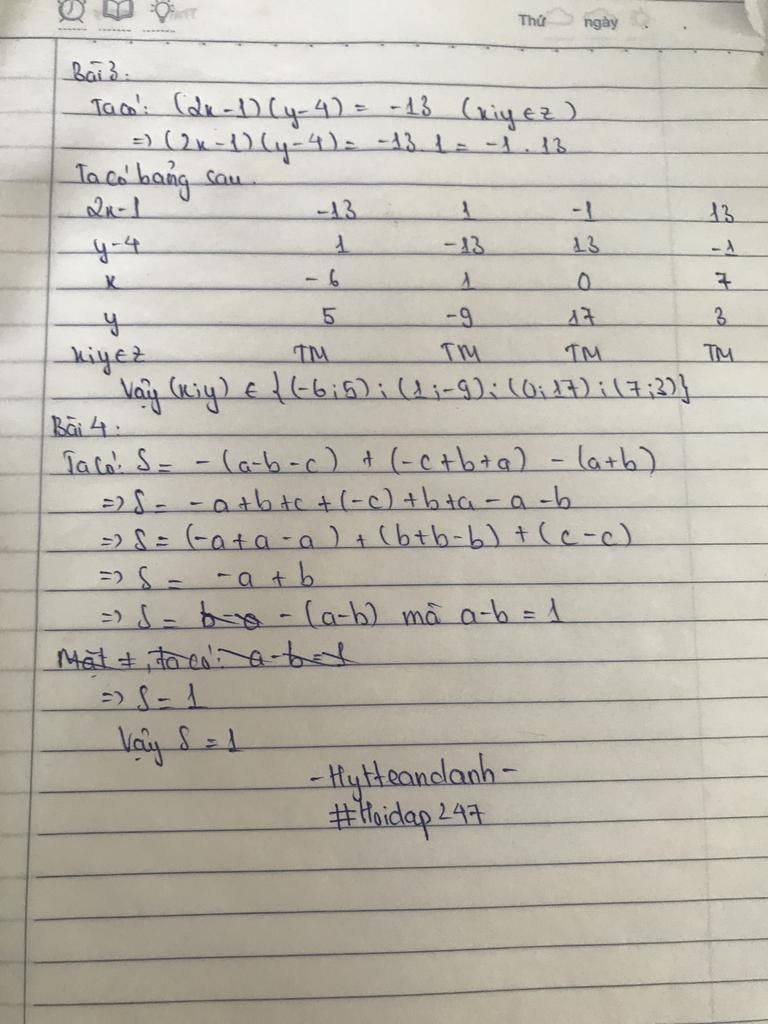 Thứ ngày
Bài 3:
Ta có: (2x-1)(y-4) = -13 (x;y ∈ Z)
=> (2x-1)(y-4) = -13.1 = -1.13
Ta có bảng sau.
2x-1 -13 1 -1 13
y-4 1 -13 13 -1
x -6 1 0 7
y 5 -9 17 3
x;y∈Z TM TM TM TM
Vậy (x;y) ∈ {(-6;5);(1;-9);(0;17);(7;3)}
Bài 4:
Ta có: S = -(a-b-c) + (-c+b+a) - (a+b)
=> S = -a+b+c+(-c)+b+a-a-b
=> S = (-a+a-a)+(b+b-b)+(c-c)
=> S = -a+b
=> S = b-a -(a-b) mà a-b=1
Mặt ≠, ta có: a-b=1
=> S = 1
Vậy S = 1
-HyHeandanh-
#Hoidap247